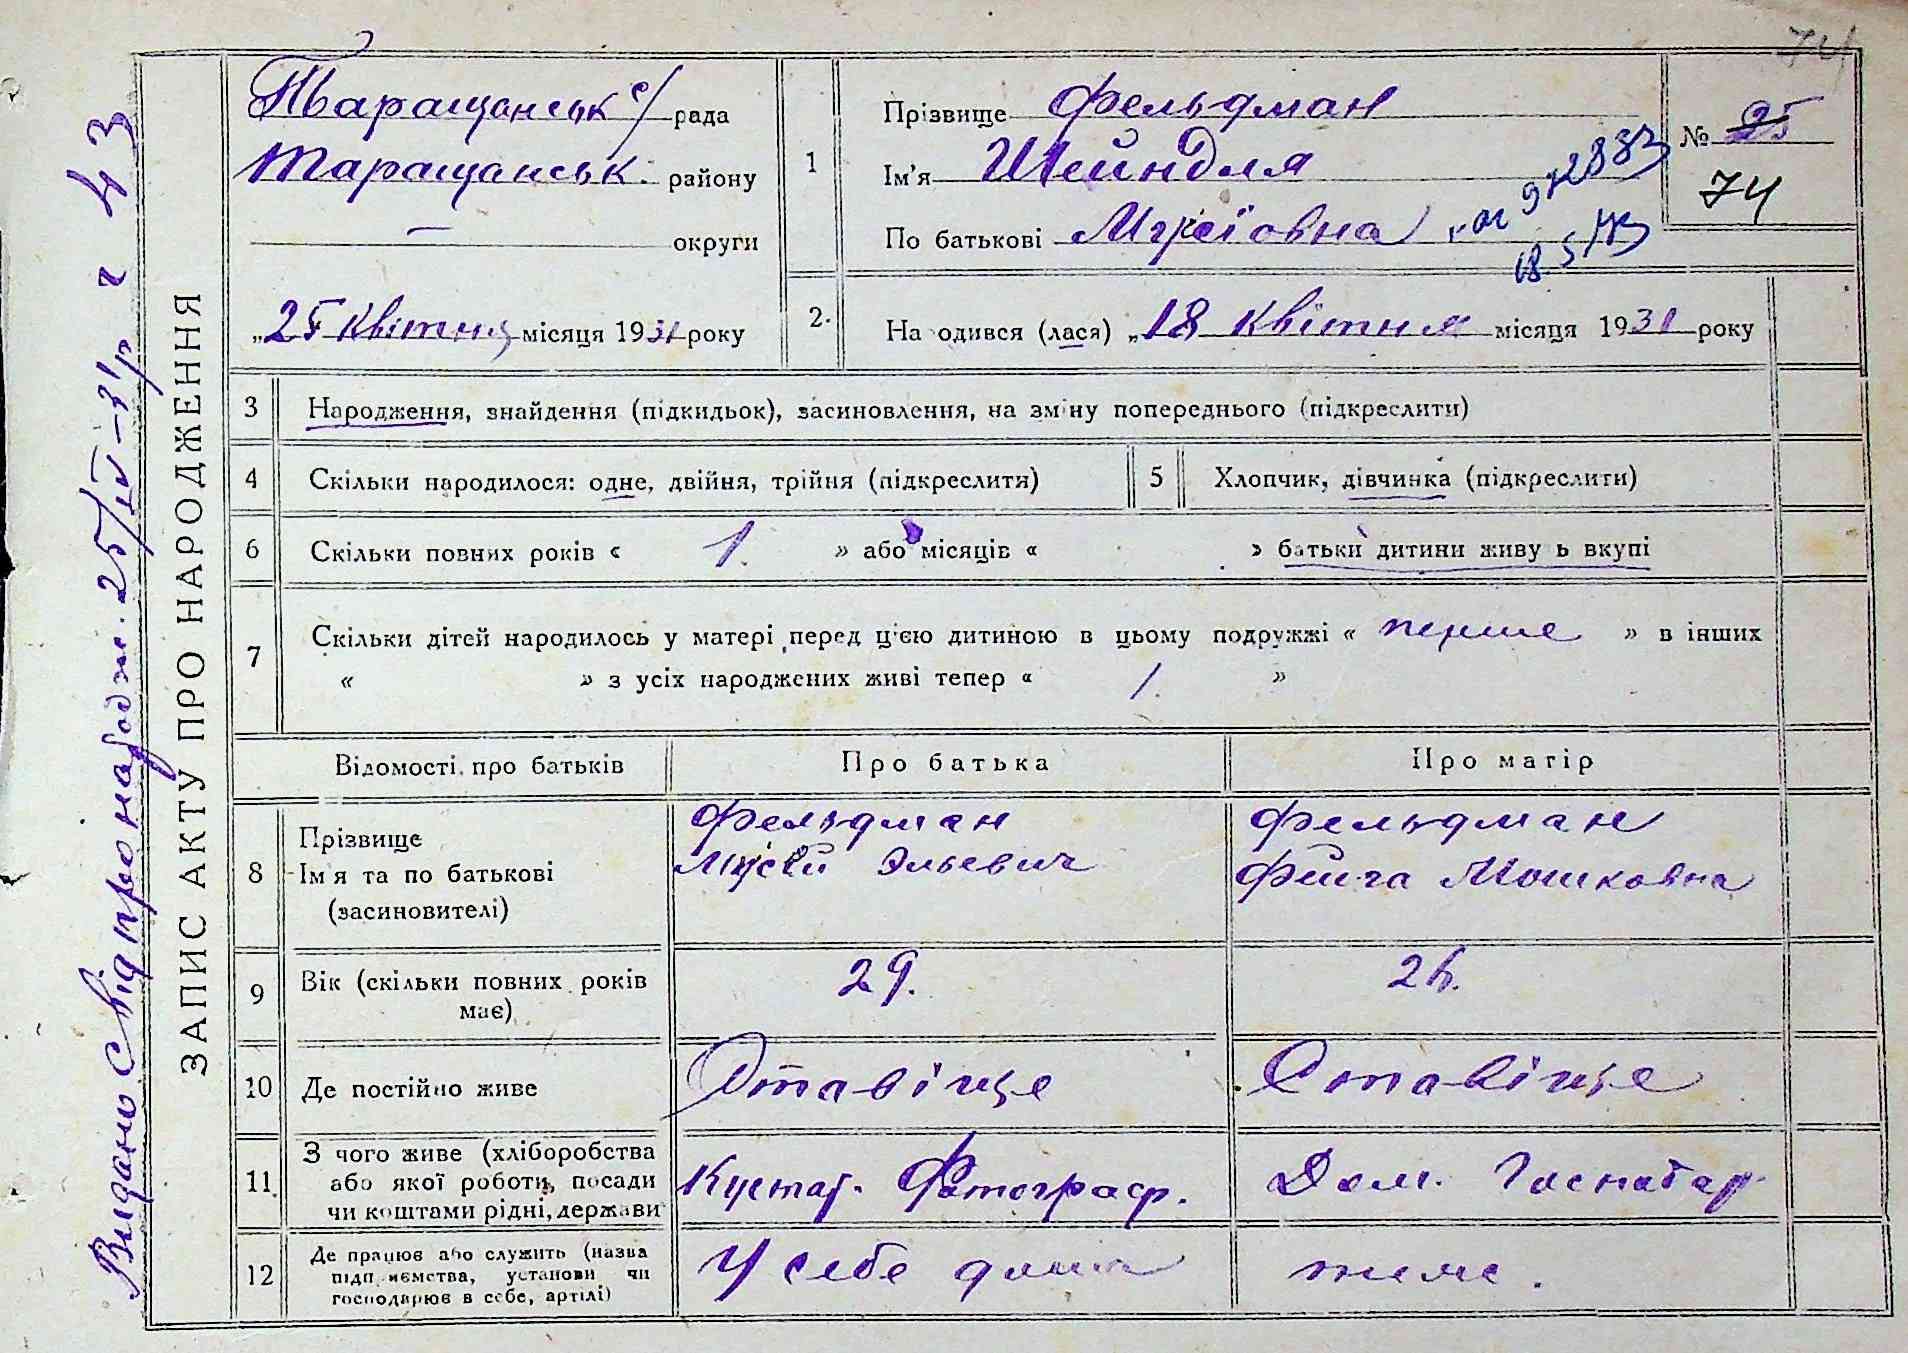 74
Таращанськ с/ рада
Таращанськ. району
— округи
„25 Квітня місяця 1931 року
1 Прізвище Фельдман
Ім'я Шейндля
По батькові
№ 25
74
972883
18 5/73
2. Народився (лася) „18 Квітня місяця 1931 року
ЗАПИС АКТУ ПРО НАРОДЖЕННЯ
Видано Свід про народж. 25/IV–31р. ч 43
3 Народження, знайдення (підкидьок), засиновлення, на зміну попереднього (підкреслити)
4 Скільки народилося: одне, двійня, трійня (підкреслитя)
5 Хлопчик, дівчинка (підкреслити)
6 Скільки повних років « 1. » або місяців « » батьки дитини живуть вкупі
7 Скільки дітей народилось у матері перед ц'єю дитиною в цьому подружжі « перше » в інших
« » з усіх народжених живі тепер « 1. »
Відомості про батьків Про батька Про матір
8 Прізвище
Ім'я та по батькові
(засиновителі)
Фельдман
Эльевич
Фельдман
Фейга Мошковна
9 Вік (скільки повних років
має)
29. 26.
10 Де постійно живе Ставіще Ставіще
11. З чого живе (хліборобства
або якої роботи, посади
чи коштами рідні, держави
Кустар. Фотограф. Дом. Господар.
12 Де працює або служить (назва
підприємства, установи чи
господарює в себе, артілі)
У себе дома теже.